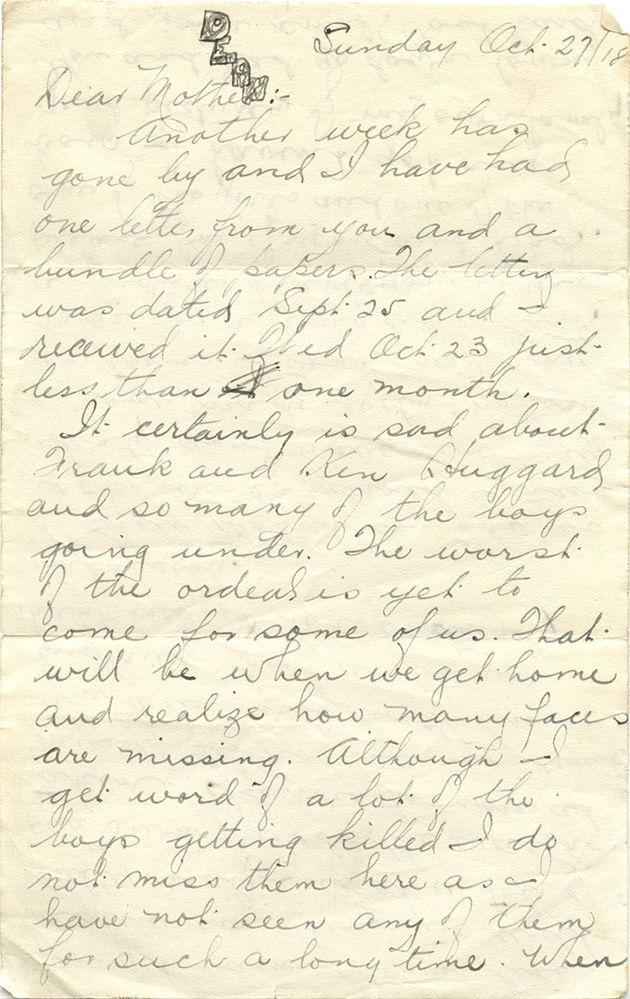 Sunday Oct. 27/18
Dear Mother:-
Another week has
gone by and I have had
one letter from you and a
bundle of papers. The letter
was dated Sept 25 and I
received it Wed Oct 23 just
less than one month.
It certainly is sad about
Frank and Ken Huggard
and so many of the boys
going under. The worst
of the ordeal is yet to
come for some of us. That
will be when we get home
and realize how many faces
are missing. Although I
get word of a lot of the
boys getting killed I do
not miss them here as I
have not seen any of them
for such a long time. When